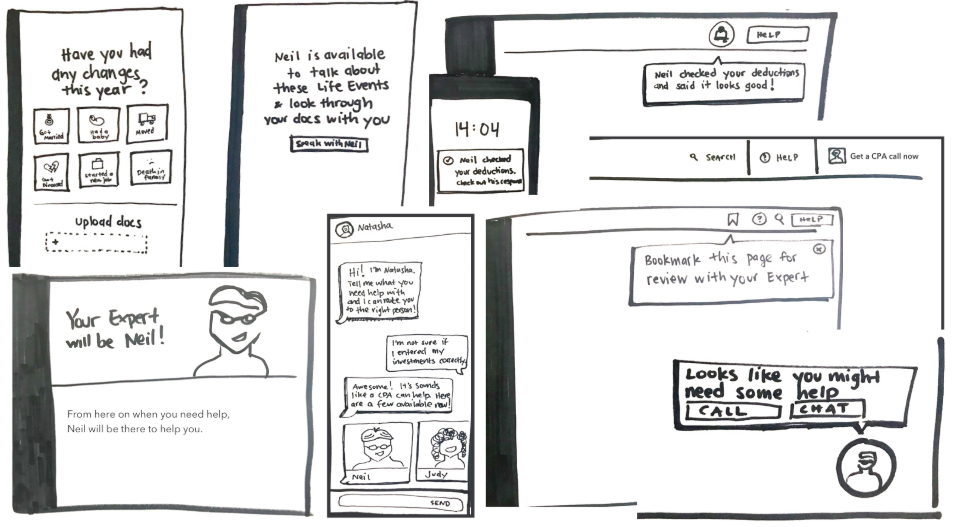 Have you had
any changes
this year?
Got
Married
Had a
baby
Moved
Got
Divorced
Started a
new job
Death in
family
Upload docs
+
Neil is available
to talk about
these Life Events
& look through
your docs with you
Speak with Neil
14:04
Neil checked
your deductions.
Check out his response
HELP
Neil checked your deductions
and said it looks good!
SEARCH
? HELP
Get a CPA call now
Your Expert
will be Neil!
From here on when you need help,
Neil will be there to help you.
Natasha
Hi! I'm Natasha.
Tell me what you
need help with
and I can route you
to the right person!
I'm not sure if
I entered my
investments correctly
Awesome! It's sounds
like a CPA can help. Here
are a few available now!
Neil
Judy
SEND
? HELP
Bookmark this page for
review with your Expert
Looks like you might
need some help
CALL CHAT